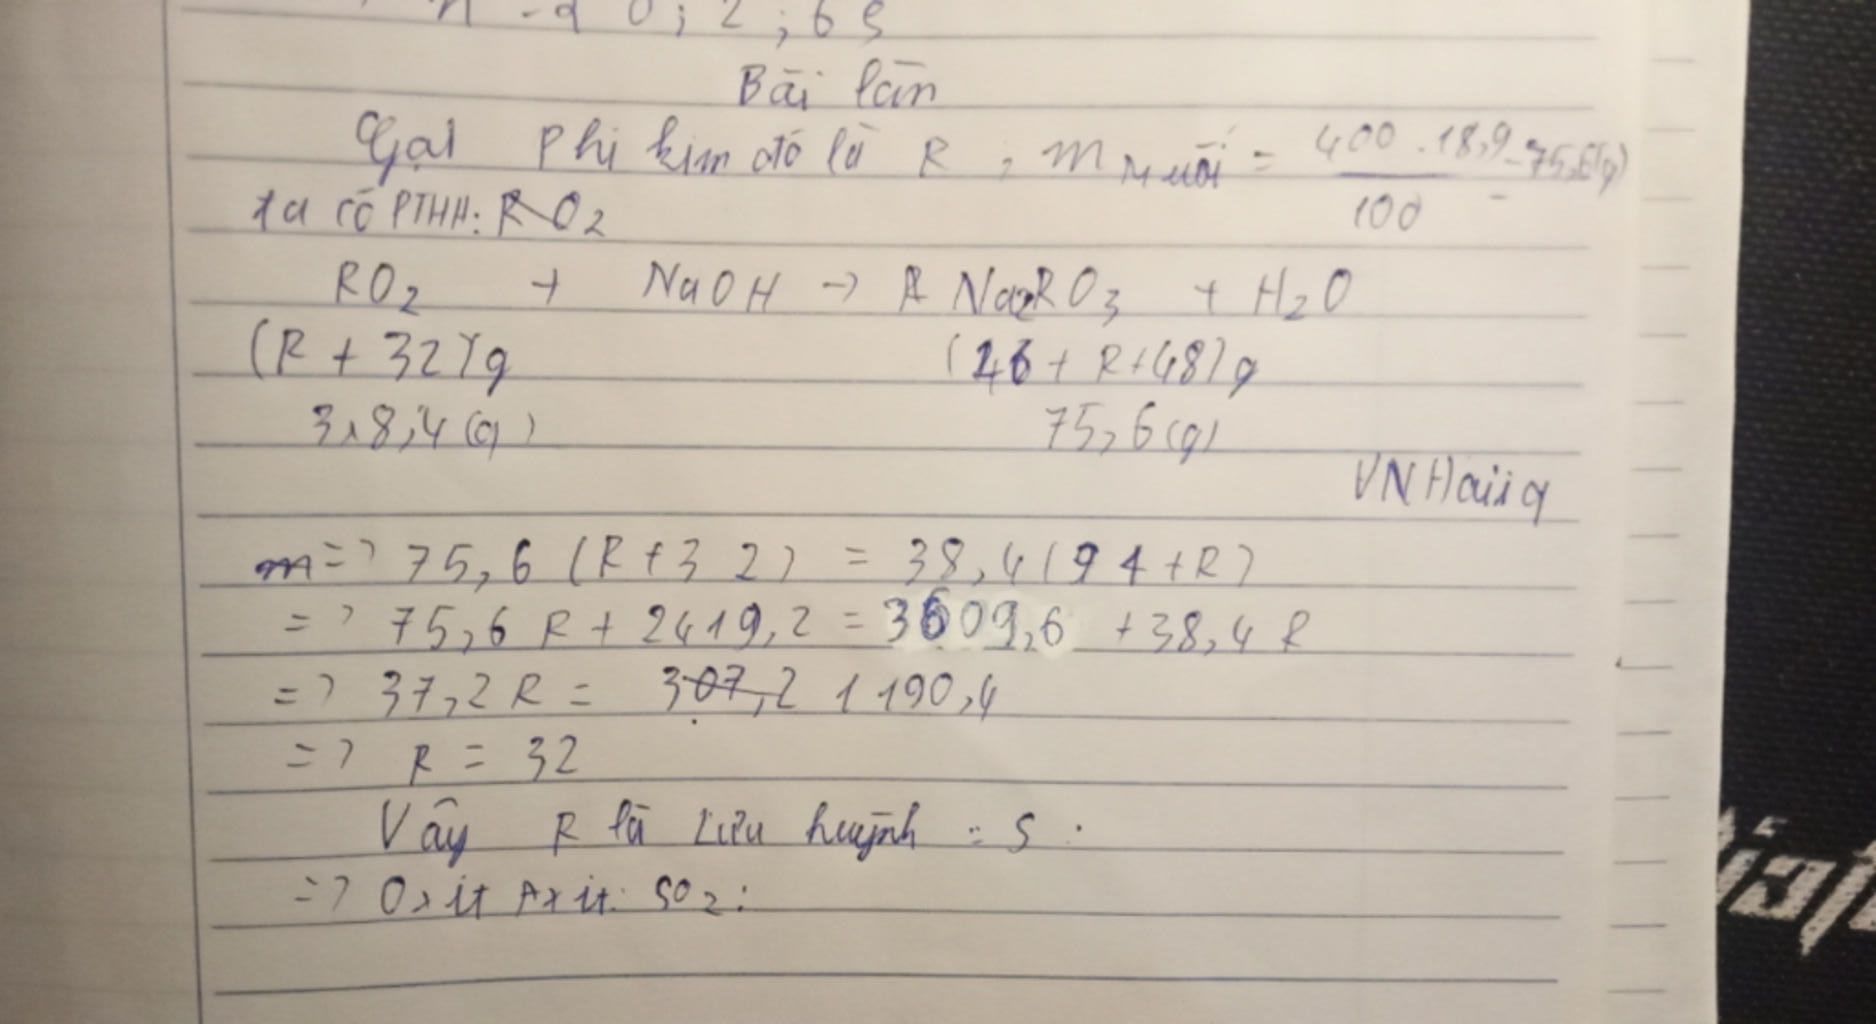 Bài làm
Gọi Phi kim đó là R, m muối = 400 . 18,9 / 100 = 75,6(g)
ta có PTHH: RO2
RO2 + NaOH -> Na2RO3 + H2O
(R + 32)g (46 + R+48)g
38,4(g) 75,6(g)
=> 75,6 (R+32) = 38,4(94+R)
=> 75,6 R + 2419,2 = 3609,6 +38,4 R
=> 37,2 R = 307,2 1190,4
=> R = 32
Vây R là Lưu huỳnh : S
=> Oxit Axit: SO2